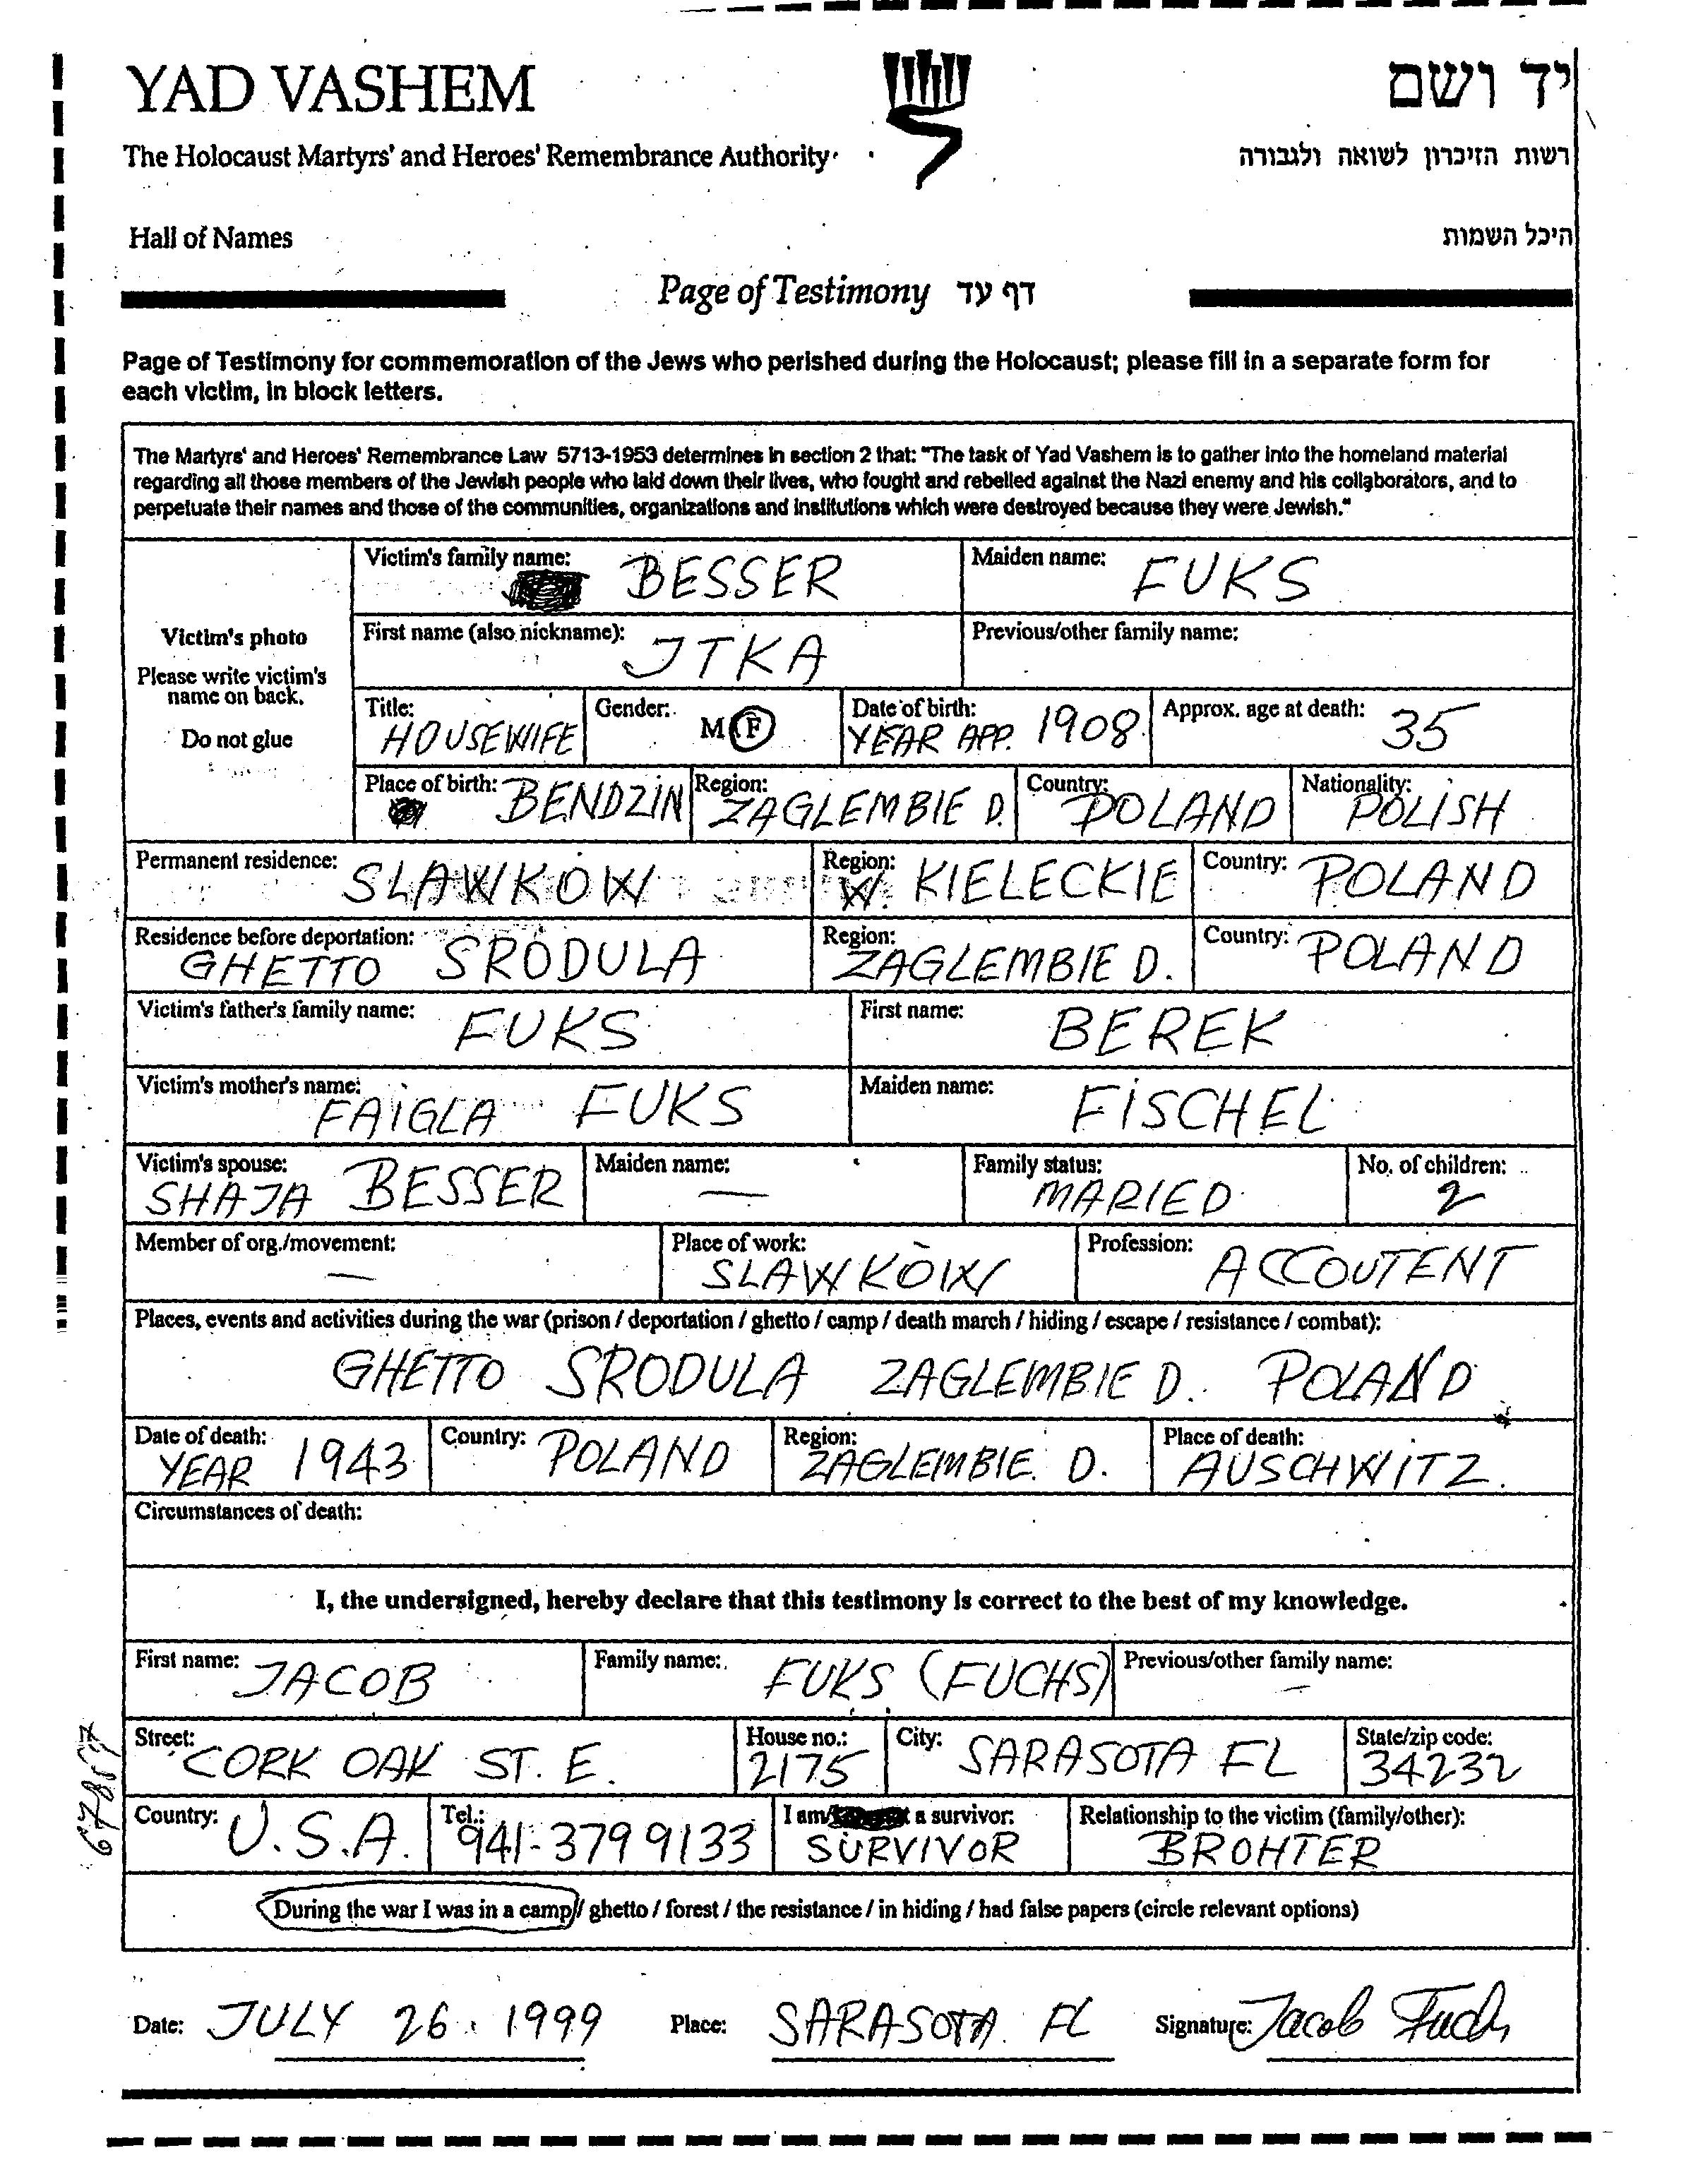 YAD VASHEM
יד ושם
The Holocaust Martyrs' and Heroes' Remembrance Authority
רשות הזיכרון לשואה ולגבורה
Hall of Names
היכל השמות
Page of Testimony דף עד
Page of Testimony for commemoration of the Jews who perished during the Holocaust; please fill in a separate form for
each victim, in block letters.
The Martyrs' and Heroes' Remembrance Law 5713-1953 determines in section 2 that: "The task of Yad Vashem is to gather into the homeland material
regarding all those members of the Jewish people who laid down their lives, who fought and rebelled against the Nazi enemy and his collaborators, and to
perpetuate their names and those of the communities, organizations and institutions which were destroyed because they were Jewish."
Victim's photo
Please write victim's
name on back.
Do not glue
Victim's family name: BESSER Maiden name: FUKS
First name (also nickname): JTKA Previous/other family name:
Title: HOUSEWIFE Gender: M F Date of birth: YEAR APP. 1908 Approx. age at death: 35
Place of birth: BENDZIN Region: ZAGLEMBIE D. Country: POLAND Nationality: POLISH
Permanent residence: SLAWKÓW Region: W. KIELECKIE Country: POLAND
Residence before deportation: GHETTO SRODULA Region: ZAGLEMBIE D. Country: POLAND
Victim's father's family name: FUKS First name: BEREK
Victim's mother's name: FAIGLA FUKS Maiden name: FISCHEL
Victim's spouse: SHAJA BESSER Maiden name: — Family status: MARIED No. of children: 2
Member of org./movement: — Place of work: SLAWKÓW Profession: ACCOUTENT
Places, events and activities during the war (prison / deportation / ghetto / camp / death march / hiding / escape / resistance / combat):
GHETTO SRODULA ZAGLEMBIE D. POLAND
Date of death: YEAR 1943 Country: POLAND Region: ZAGLEMBIE. D. Place of death: AUSCHWITZ.
Circumstances of death:
I, the undersigned, hereby declare that this testimony is correct to the best of my knowledge.
First name: JACOB Family name: FUKS (FUCHS) Previous/other family name: —
Street: CORK OAK ST. E. House no.: 2175 City: SARASOTA FL State/zip code: 34232
Country: U.S.A. Tel.: 941-379 9133 I am/ a survivor: SURVIVOR Relationship to the victim (family/other): BROHTER
During the war I was in a camp / ghetto / forest / the resistance / in hiding / had false papers (circle relevant options)
Date: JULY 26. 1999 Place: SARASOTA. FL Signature: Jacob Fuchs